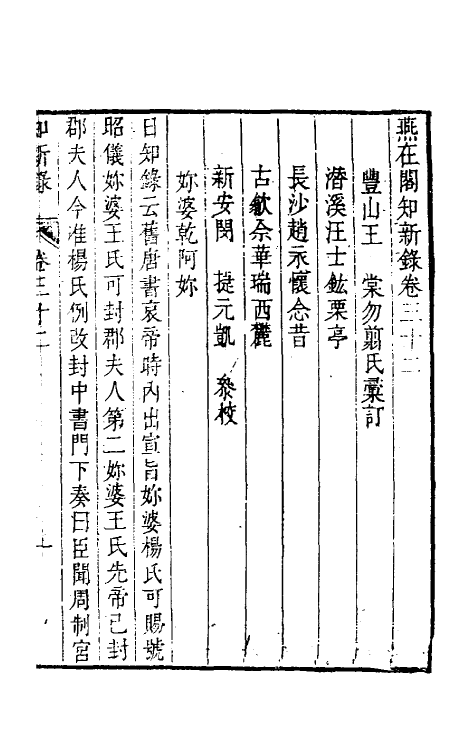 燕在閣知新錄卷三十二
豐山王　棠勿翦氏彚訂
潛溪汪士鋐栗亭
長沙趙永懷念昔
古歙佘華瑞西麓
新安閔　捷元凱　叅校
妳婆乾阿妳
日知錄云舊唐書哀帝時內出宣旨妳婆楊氏可賜號
昭儀妳婆王氏可封郡夫人第二妳婆王氏先帝已封
郡夫人今准楊氏例改封中書門下奏曰臣聞周制宮
知新錄　卷三十二